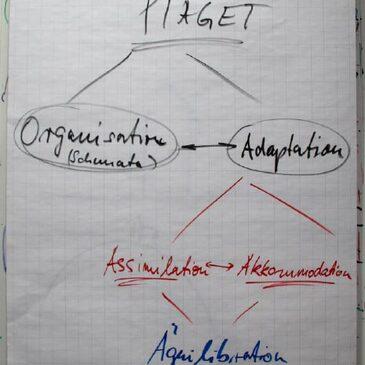 PIAGET
Organisation Adaptation
(Schemata)
Assimilation Akkommodation
Äquilibration